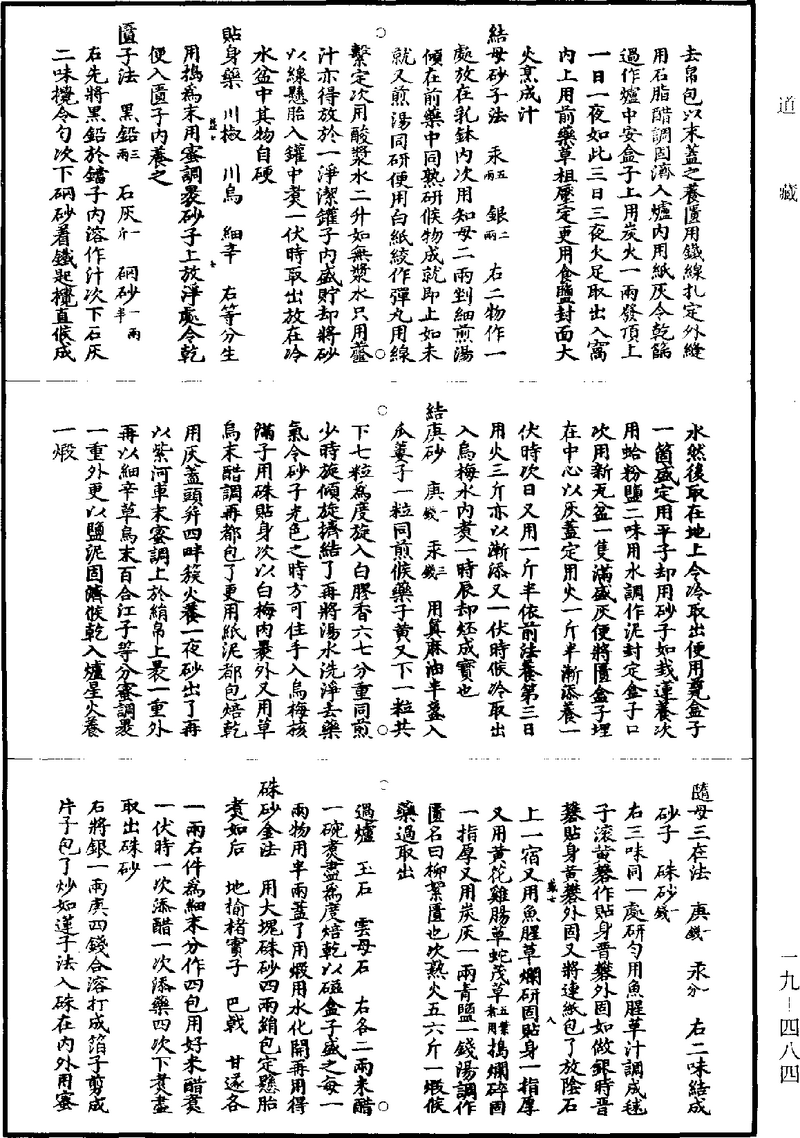 道藏
一九—四八四
去帛包以末蓋之養匱用鐵線扎定外縫
用石脂醋調固濟入爐內用紙灰令乾篩
過作爐中安盒子上用炭火一兩發頂上
一日一夜如此三日三夜火足取出入窩
內上用前藥草柤壓定更用食鹽封面大
火烹成汁
結母砂子法 汞五兩 銀二兩 右二物作一
處放在乳鉢內次用知母二兩剉細煎湯
傾在前藥中同熟研候物成就即止如未
就又煎湯同研便用白紙絞作彈丸用線
繫定次用酸漿水二升如無漿水只用虀
汁亦得放於一淨潔鑵子內盛貯却將砂
以線懸胎入鑵中煑一伏時取出放在冷
水盆中其物自硬
貼身藥 川椒 川烏 細辛 右等分生
用搗為末用蜜調褁砂子上放淨處令乾
便入匱子內養之
匱子法 黑鉛三兩 石灰一斤 硇砂一兩半
右先將黑鉛於鐺子內溶作汁次下石灰
二味攪令勻次下硇砂着鐵匙攪直候成
水然後取在地上令冷取出使用甆盒子
一箇盛定用平子却用砂子如栽蓮養次
用蛤粉鹽二味用水調作泥封定盒子口
次用新瓦盆一隻滿盛灰便將匱盒子埋
在中心以灰蓋定用火一斤半漸添養一
伏時次日又用一斤半依前法養第三日
用火三斤亦以漸添又一伏時候冷取出
入烏梅水內煑一時辰却坯成寶也
結庚砂 庚一錢 汞三錢 用萆麻油半盞入
瓜蔞子一粒同煎候藥子黃又下一粒共
下七粒為度旋入白膠香六七分重同煎
少時旋傾旋擠結了再將湯水洗淨去藥
氣令砂子光色之時方可住手入烏梅核
滿子用硃貼身次以白梅肉褁外又用草
烏末醋調再都包了更用紙泥都包焙乾
用灰蓋頭并四畔簇火養一夜砂出了再
以紫河車末蜜調上於絹帛上褁一重外
再以細辛草烏末百合江子等分蜜調褁
一重外更以鹽泥固濟候乾入爐星火養
一煅
隨母三在法 庚一錢 汞一分 右二味結成
砂子 硃砂一錢
右三味同一處研勻用魚腥草汁調成毬
子滾黃礬作貼身晉礬外固如做銀時晉
礬貼身黃礬外固又將連紙包了放陰石
上一宿又用魚腥草爛研固貼身一指厚
又用黃花雞腸草蛇茂草搗爛碎固
一指厚又用炭灰一兩青鹽一錢陽調作
匱名曰柳絮匱也次熟火五六斤一煅候
藥過取出
過爐 玉石 雲母石 右各二兩米醋
一碗煑盡為度焙乾以磁盒子盛之每一
兩物用半兩蓋了用煅用水化開再用得
硃砂金法 用大塊硃砂四兩絹包定懸胎
煑如后 地榆楮實子 巴戟 甘遂各
一兩右件為細末分作四包用好米醋煑
一伏時一次添醋一次添藥四次下煑盡
取出硃砂
右將銀一兩庚四錢合溶打成箔子剪成
片子包了炒如蓮子法入硃在內外用蜜